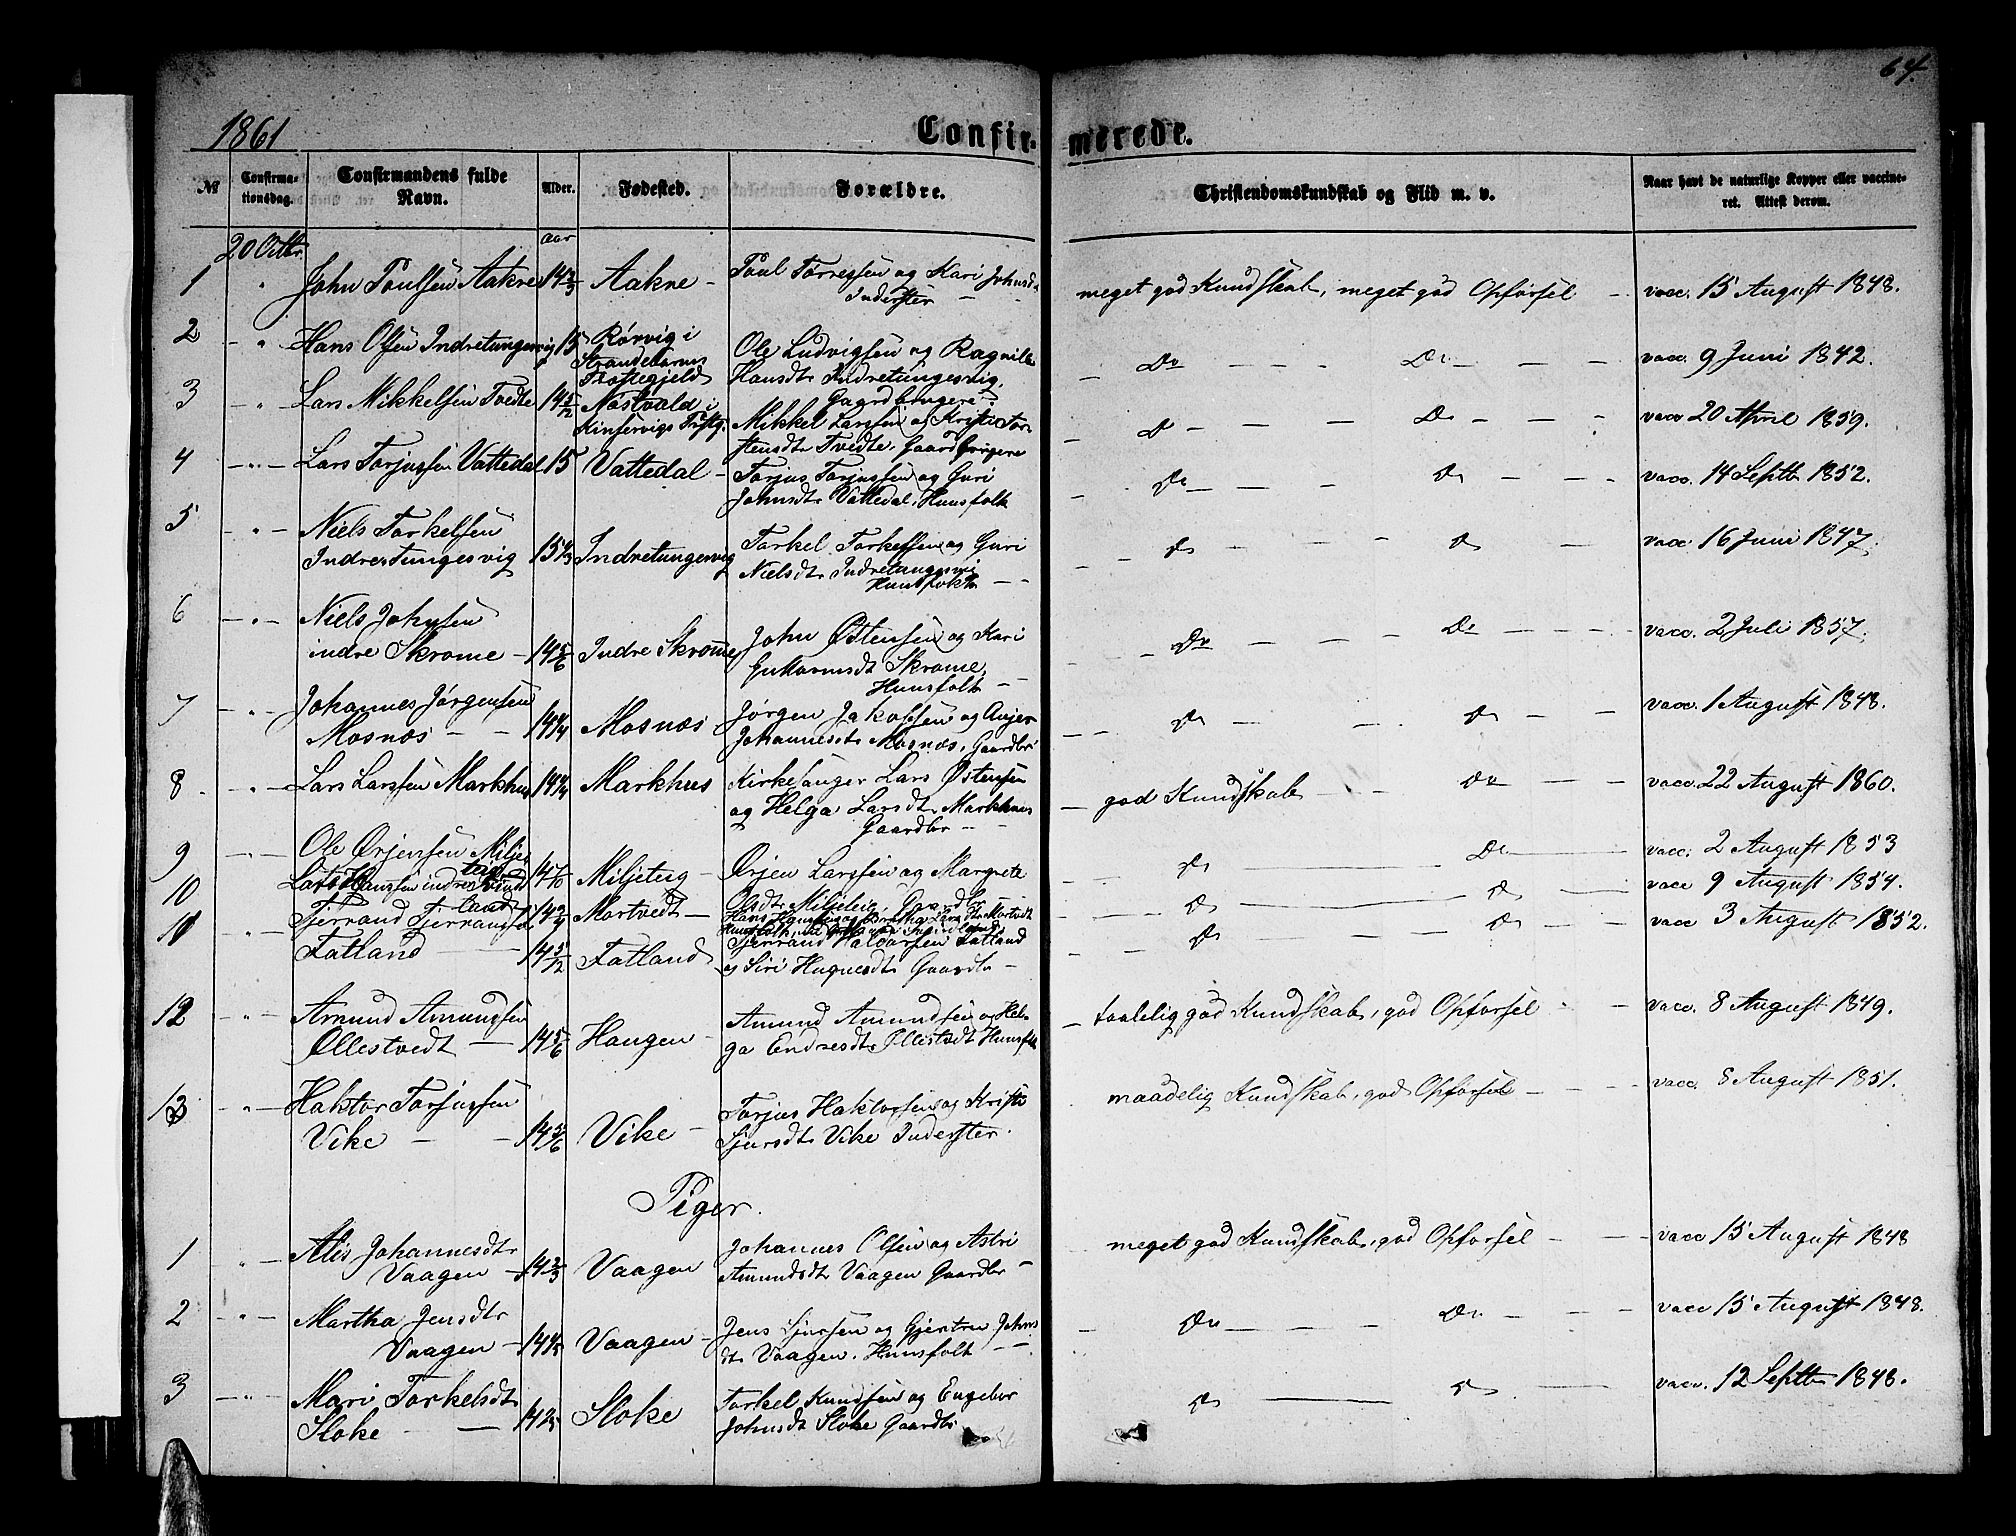 64.
1861
Confirmerede.
№ Confirmationsdag. Confirmandens fulde Navn. Alder. Fødested. Forældre. Christendomskundskab og Flid m. v. Naar havt de naturlige Kopper eller vaccineret. Attest derom.
20 Octbr. aar
1 " John Poulsen Aakre 14 2/3 Aakre - Poul Torregsen og Kari Johnsdtr
Inderster - meget god Kundskab, meget god Opførsel - vacc. 15 August 1848.
2 - " Hans Olsen Indretungesvig 15 Rørvig i
Strandebarms
Præstegjeld Ole Ludvigsen og Ragnilde
Hansdtr Indretungesvig,
Gaardbrugere - Do - Do - vacc. 9 Juni 1842.
3 - " Lars Mikkelsen Tvedte 14 5/12 Nostvold i
Kinservigs Præstg. Mikkel Larssen og Kristi Tor-
stensdtr Tvedte, Gaardbrugere - Do - Do - vacc 20 April 1859.
4 - " - Lars Torjussen Vattedal 15 Vattedal - Torjus Torjussen og Guri
Johnsdtr Vattedal, Huusfolk - Do - Do - vacc. 14 Septbr 1852.
5 - " - Niels Torkelsen
Indre Tungesvig 15 1/3 Indretungesvig Torkel Torkelsen og Guri
Nielsdtr Indretungesvig
Huusfolk - Do - Do - vacc 16 Juni 1847.
6 - " - Niels Johnsen
indre Skrome - 14 5/6 Indre Skrome John Østensen og Kari
Skrome,
Huusfolk - Do - Do - vacc. 2 Juli 1857.
7 - " - Johannes Jørgensen
Mosnæs - 14 1/4 Mosnæs Jørgen Jakobsen og
Johannesdtr Mosnæs, Gaardbr - Do - Do - vacc. 1 August 1848.
8 - " - Lars Larssen Markhus 14 1/4 Markhus Kirkesanger Lars Østensen
og Helga Larsdtr Markhuus
Gaardbr - god Kundskab - Do - vacc. 22 August 1860.
9 - " - Ole Ørjensen Miljeteig Miljeteig - Ørjen Larssen og Margrete
Olsdtr Miljeteig, Gaardbr - Do - Do - vacc. 2 August 1853
10 Hanssen indre Mortvedt - Hans Mortvedt
Huusfolk - Do - Do - vacc 9 August 1854.
11 Tjerrand Tjerrandsen
Fatland - 14 5/12 Fatland Tjerrand Haldorsen Fatland
og Siri Hagnesdtr Gaardbr - Do - Do - vacc 3 August 1852.
12 - " - Amund Amundsen
Øllestvedt - 14 5/6 Haugen - Amund Amundsen og Hel-
ga Endresdtr Øllestvedt Huusfolk - taalelig god Kundskab, god Opførsel - vacc. 8 August 1849.
13 - " - Haktor Torjussen
Vike - 14 5/6 Vike - Torjus Haktorsen og Kristi
Sjursdtr Vike Inderster. maadelig Kundskab, god Opførsel - vacc. 8 August 1851.
Piger.
1 " - Alis Johannesdtr
Vaagen - 14 2/3 Vaagen Johannes Olsen og Astri
Amundsdtr Vaagen Gaardbr - meget god Kundskab, god Opførsel - vacc 15 August 1848
2 - " - Martha Jensdtr
Vaagen - Vaagen - Jens Sjursen og Gjertru Johns
dtr Vaagen, Huusfolk - Do - Do - vacc 15 August 1848.
3 - " - Mari Torkelsdtr
Sloke - Sloke Torkel Knudsen og Engebor
Johnsdt Sloke Gaardbr Do - Do - vacc. 12 Septbr 1848.